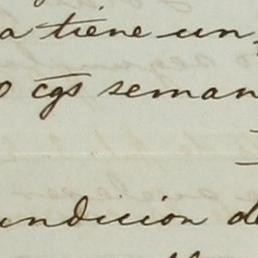 a tiene un
cgs seman
undicion de